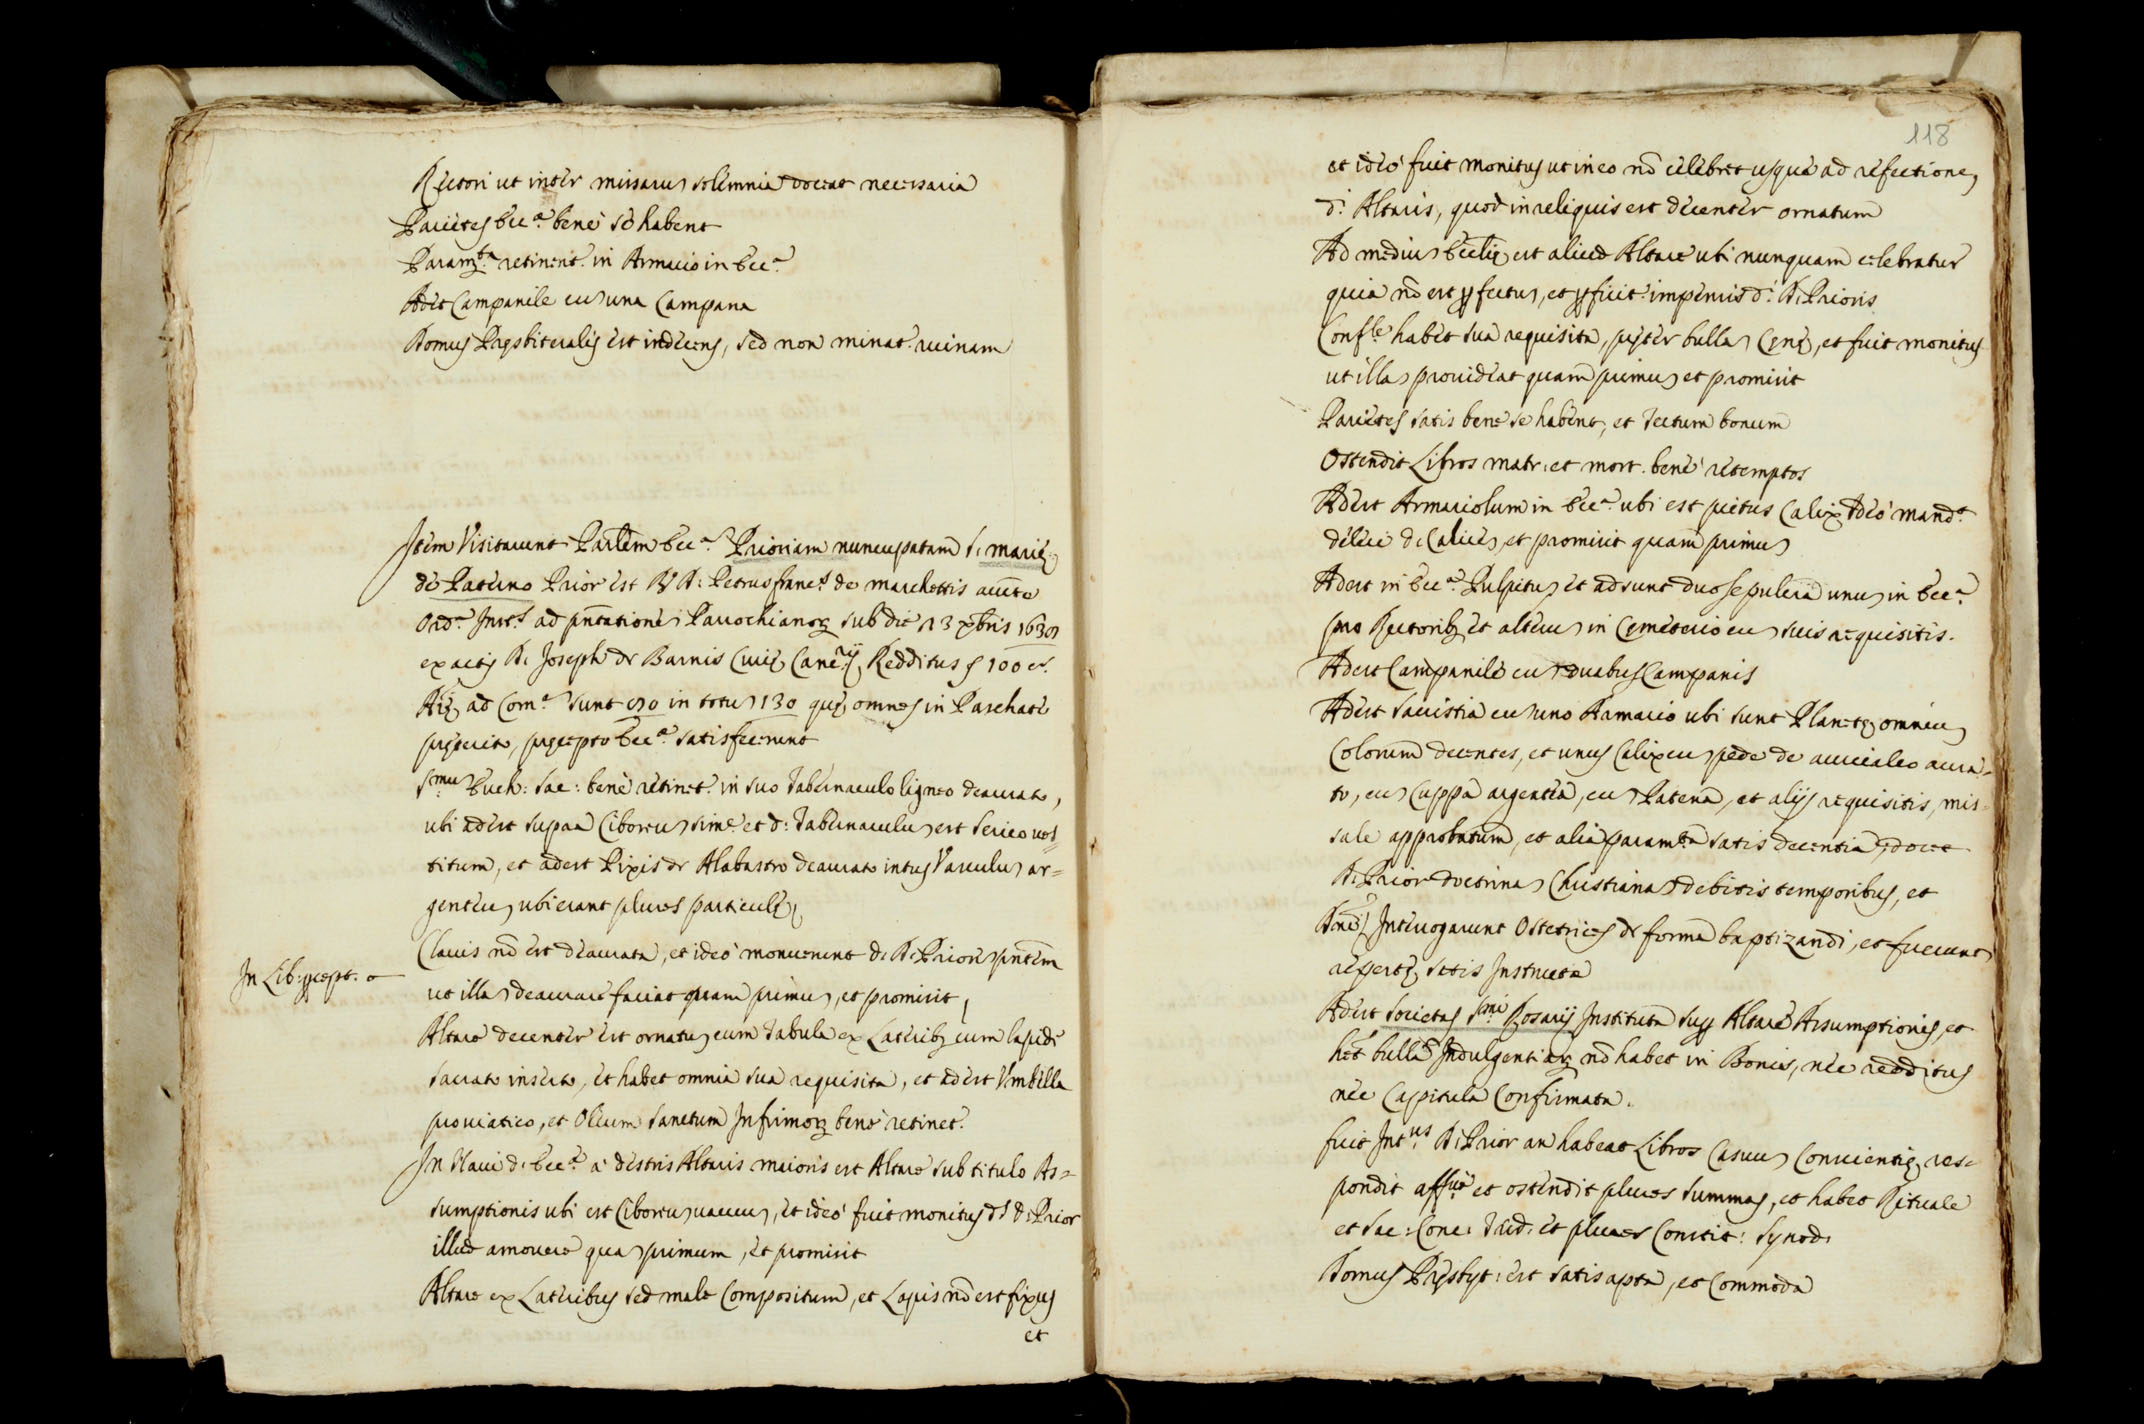 Rectori ut inter missarum solemnia doceat necessaria
Parietes Ecc.ę benè se habent
Param.ta retinent.r in Armario in Ecc.a
Adest Campanile cum una Campana
Domus Pręsbiteralis est indecens, sed non minat.r ruinam
Item Visitarunt Parlem Ecc.am Prioriam nuncupatam S. Marię
de Patuno Prior est R. D. Petrus Franc.s de Marchettis auctte
Ord.a Inst.s ad pñtationem Parochianorum sub die 13 Xbris 1630
ex actis D. Joseph de Barnis Curię Canc.rij Redditus s 100 c.
Aię ad Com.m sunt 90 in totum 130 quę omnes in Paschate
pręterito, pręcepto Ecc.ę satisfecerunt
S.mum Euch: Sac: benè retinet.r in suo Tabernaculo ligneo deaurato,
ubi adest supra Ciborium sine et d: Tabernaculum est serico ves=
titum, et adest Pixis de Alabastro deaurato intus Vasculum ar=
genteum ubi erant plures particulę
Clavis nõ est deaurata, et ideò monuerunt d. D. Priorem pñtem
In Lib: pręcept.
ut illam deaurare faciat quam primum, et promisit
Altare decenter est ornatum cum Tabula ex Lateribus cum lapide
sacrato inserto, et habet omnia sua requisita, et adest Umbella
pro viatico, et Oleum Sanctum Infirmorum benè retinet.r
In Navi d. Ecc.ę à dextris Altaris maioris est Altare sub titulo As=
sumptionis ubi est Ciborium vacuum, et ideò fuit monitus ds D: Prior
illud amovere quam primum, et promisit
Altare ex Lateribus sed male Compositum, et Lapis nõ est fixus
et
118
et ideò fuit monitus ut in eo nõ celebret usque ad refectionem
d: Altaris, quod in reliquis est decenter ornatum
Ad medium Ecclię est aliud Altare ubi nunquam celebratur
quia nõ est perfectum, et perficit.r impensis d: D. Prioris
Conf.le habet sua requisita, pręter bullam Cęnę, et fuit monitus
ut illam provideat quam primum et promisit
Parietes satis bene se habent, et Tectum bonum
Ostendit Libros matr: et mort. benè retemptos
Adest Armariolum in Ecc.a ubi est pictus Calix Ideò mand.t
deleri d. Calicem et promisit quam primum
Adest in Ecc.a Pulpitum et adsunt duo sepulcra unum in Ecc.a
pro Rectoribus et alterum in Cęmeterio cum suis requisitis.
Adest Campanile cum duabus Campanis
Adest Sacristia cum uno Armario ubi sunt Planetę omnium
Colorum decentes, et unus Calix cum pede de auricalco aura=
to, cum Cuppa argentea, cum Patena, et alijs requisitis, mis=
sale approbatum, et alia paramta satis decentia, docet
D. Prior doctrinam Christianam debitis temporibus, et
Interrogarunt Ostetrices de forma baptizandi, et fuerunt
repertę satis Instructę
Adest Societas S.mi Rosarij Instituta supra Altare Assumptionis, et
hẽt bullam Indulgentiarum nõ habet in Bonis, nec redditus
nec Capitula Confirmata.
fuit Int.us D. Prior an habeat Libros Casuum Conscientię res=
pondit aff.vè et ostendit plures Summas, et habet Rituale
et Sac: Conc: Trid: et plures Constit: Synod.
Domus Pręsbyt: est satis apta, et Commoda